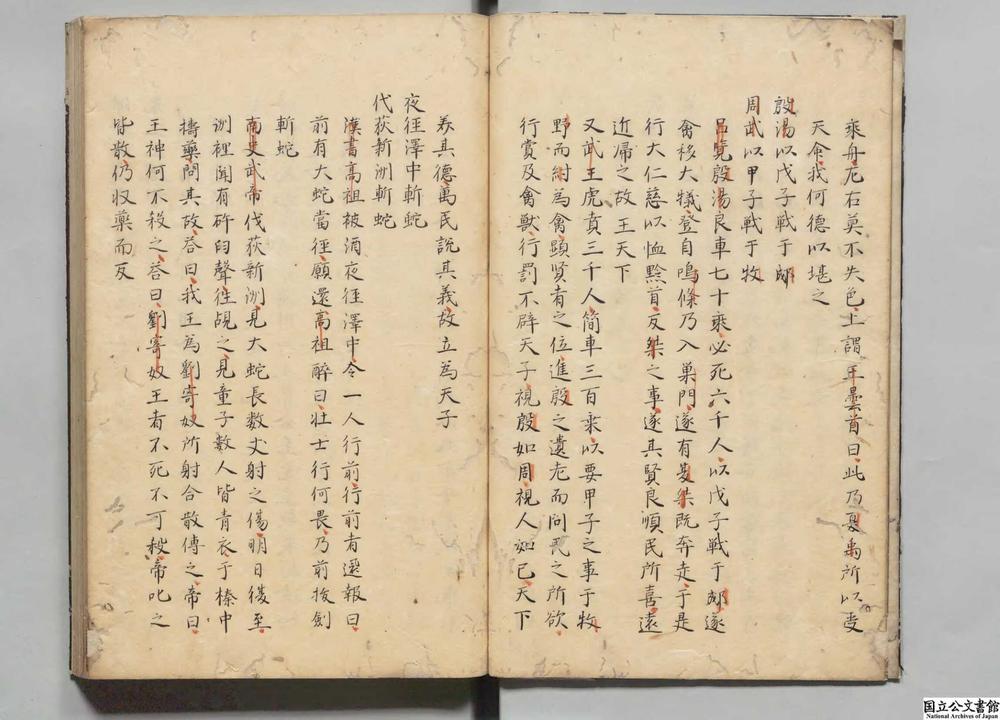 乘舟左右莫不失色上謂王曇首曰此乃夏禹所以受
天命我何德以堪之
殷湯以戊子戰于郕
周武以甲子戰于牧
呂覽殷湯良車七十乘必死六千人以戊子戰于郕遂
禽移大犠登自鳴條乃入巢門遂有夏桀既奔走于是
行大仁慈以恤黔首反桀之事遂其賢良順民所喜遠
近歸之故王天下
又武王虎賁三千人簡車三百乘以要甲子之事于牧
野而紂為禽顕賢者之位進殷之遺老而問民之所欲
行賞及禽獸行罰不辟天子視殷如周視人如己天下
美其德萬民說其義故立為天子
夜徑澤中斬蛇
伐荻新洲斬蛇
漢書高祖被酒夜徑澤中令一人行前行前者還報曰
前有大蛇當徑願還高祖醉曰壯士行何畏乃前抜劍
斬蛇
南史武帝伐荻新洲見大蛇長数丈射之傷明日復至
洲裡聞有杵臼聲往覘之見童子數人皆青衣于榛中
擣藥問其故荅曰我王為劉寄奴所射合散傅之帝曰
王神何不殺之荅曰劉寄奴王者不死不可殺帝叱之
皆散仍収藥而反
国立公文書館
National Archives of Japan